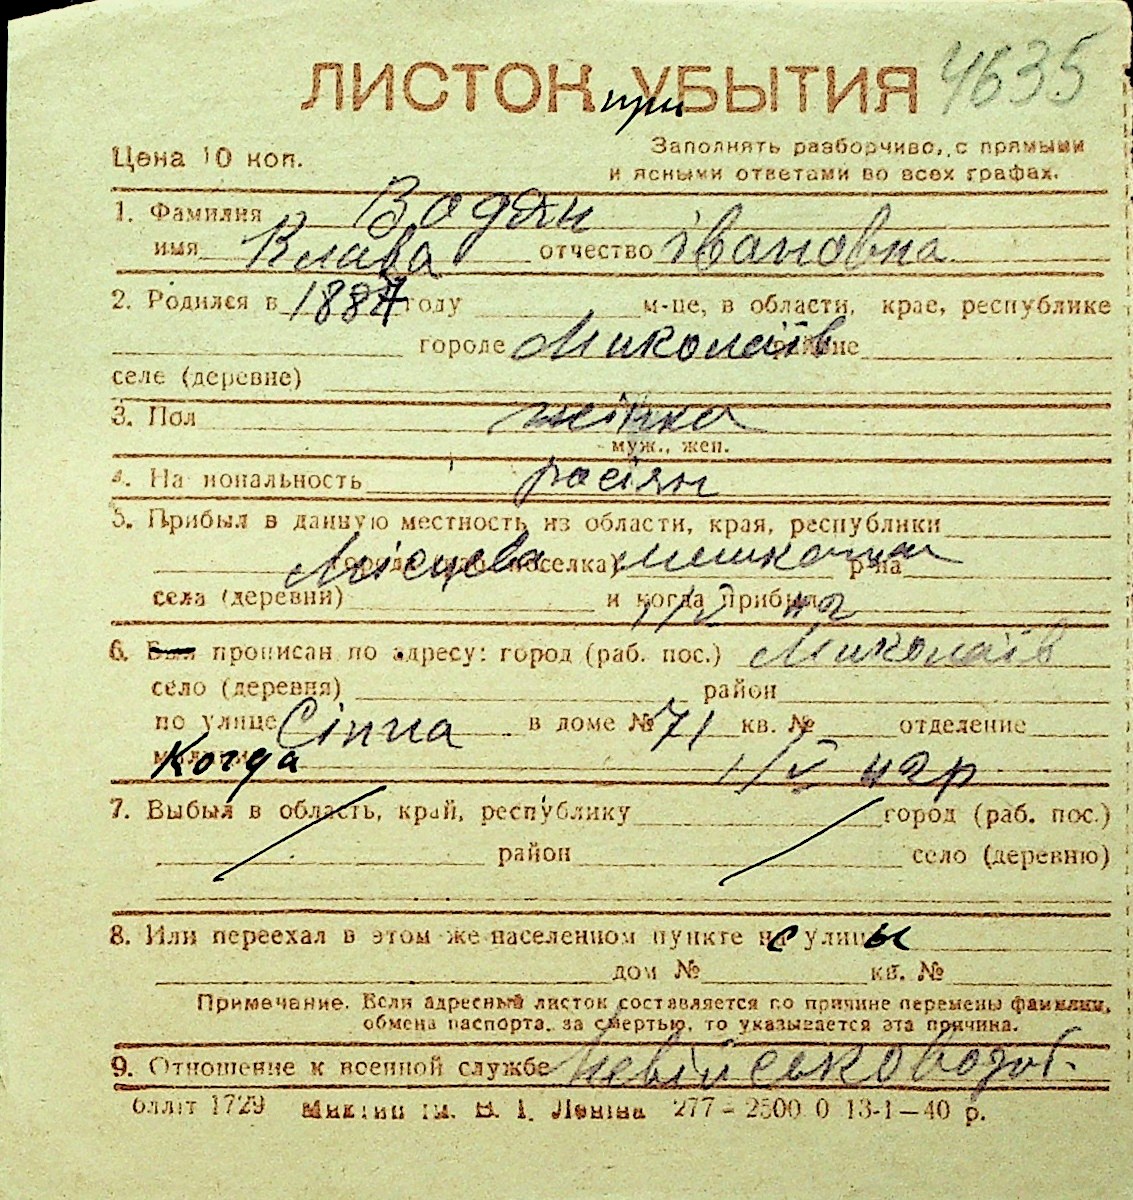 4635
ЛИСТОК при УБЫТИЯ
Цена 10 коп.
Заполнять разборчиво, с прямыми
и ясными ответами во всех графах.
1. Фамилия Водян
имя Клава отчество Івановна
2. Родился в 1887 году м-це, в области, крае, республике
городе Миколаїв районе
селе (деревне)
3. Пол жінка
муж., жен.
4. Национальность росіян
5. Прибыл в данную местность из области, края, республики
Місцева мешканка города поселка) р-на
села (деревни) и когда прибыл 1/V 42
6. Был прописан по адресу: город (раб. пос.) Миколаїв
село (деревня) район
по улице Сінна в доме № 71 кв. № отделение
Когда 1/V 42 р
7. Выбыл в область, край, республику город (раб. пос.)
район село (деревню)
8. Или переехал в этом же населенном пункте с улицы
дом № кв. №
Примечание. Если адресный листок составляется по причине перемены фамилии,
обмена паспорта, за смертью, то указывается эта причина.
9. Отношение к военной службе Невійськовозоб.
блліт 1729 Миктип ім. В. І. Леніна 277 – 2500 0 13-1—40 р.